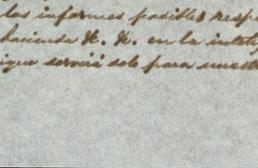 los informes posibles resp
hacienda H. H. en la intelig
que servirá solo para nuest